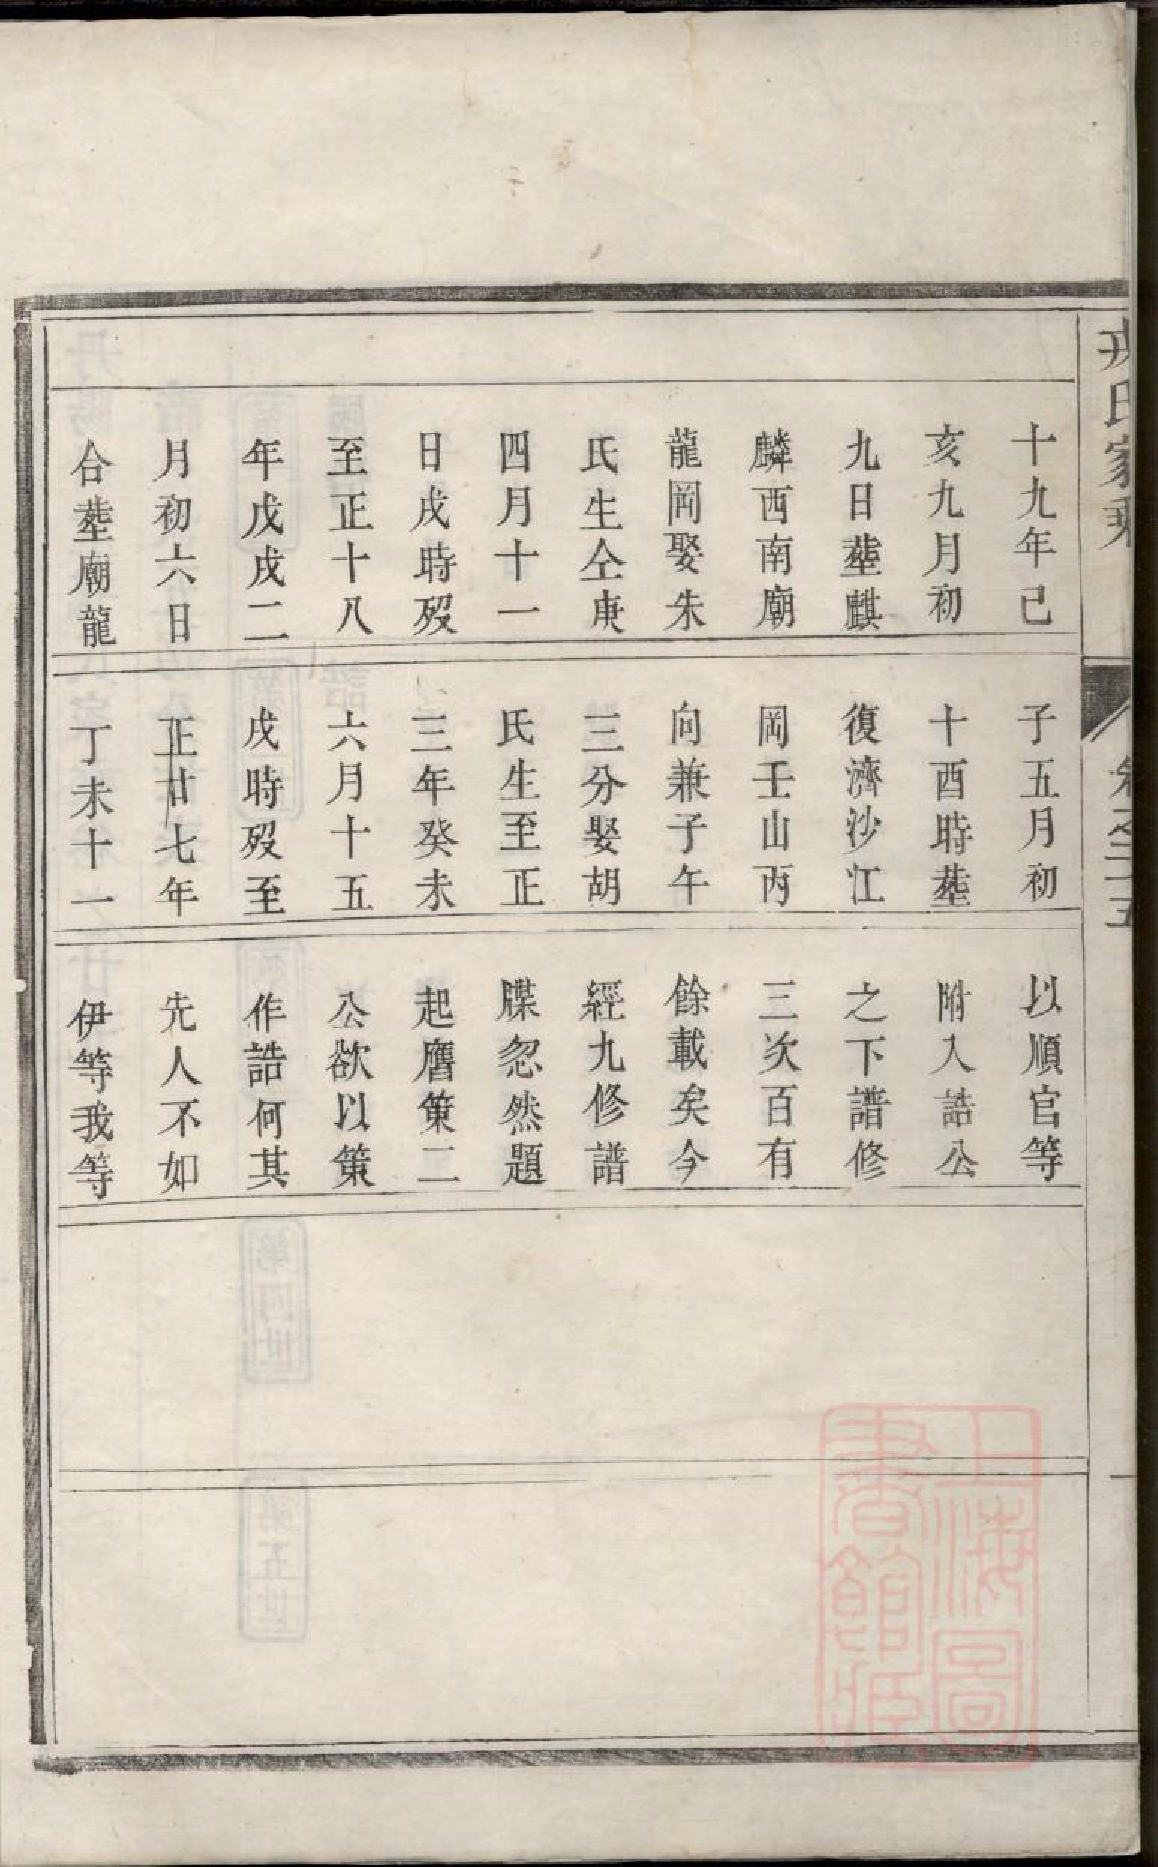 十九年己
亥九月初
九日塟麒
麟西南廟
龍岡娶朱
氏生仝庚
四月十一
日戌時歿
至正十八
年戊戌二
月初六日
合塟廟龍
子五月初
十酉時塟
復濟沙江
岡壬山丙
向兼子午
三分娶胡
氏生至正
三年癸未
六月十五
戌時歿至
正廿七年
丁未十一
以順官等
附入誥公
之下譜修
三次百有
餘載矣今
經九修譜
牒忽然題
起譍策二
公欲以策
作誥何其
先人不如
伊等我等
氏家乘
卷之二五
上海圖
書館藏